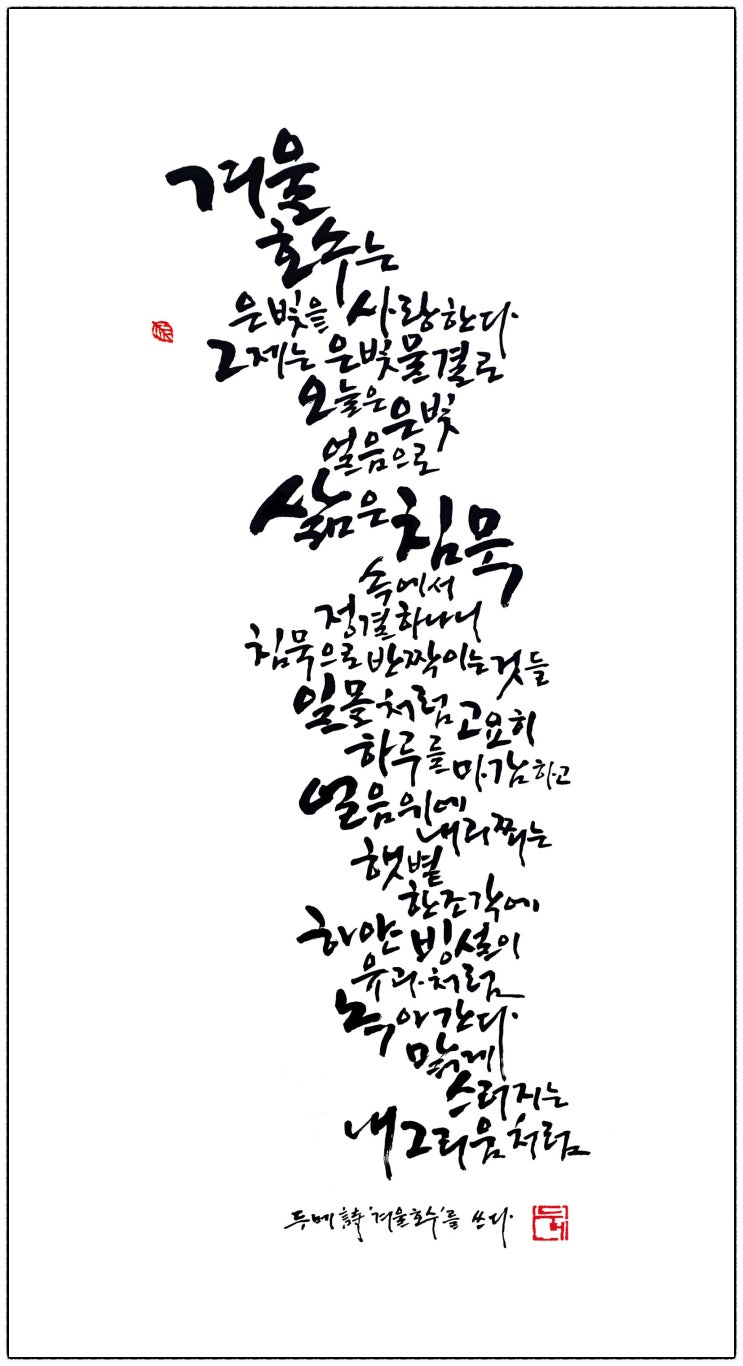 겨울
호수는
은빛을 사랑한다.
그제는 은빛물결로
오늘은 은빛
얼음으로
삶은 침묵
속에서
정결하나니
침묵으로 반짝이는것들
일몰처럼 고요히
하루를 마감하고
얼음위에
내리쬐는
햇볕
한조각에
하얀 빙설이
유과처럼
녹아간다.
맑게
스러지는
내그리움처럼
두메 詩 '겨울호수'를 쓰다.
두메